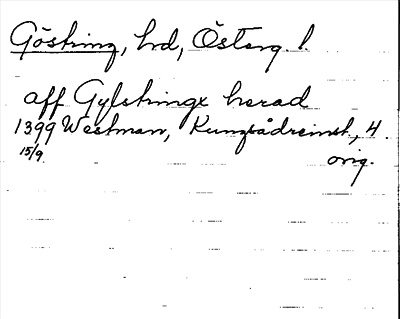 Göstring, hd, Österg. l.
aff Gylstringx herad
1399 Westman, Kungsådreinst, 4.
15/9. orig.